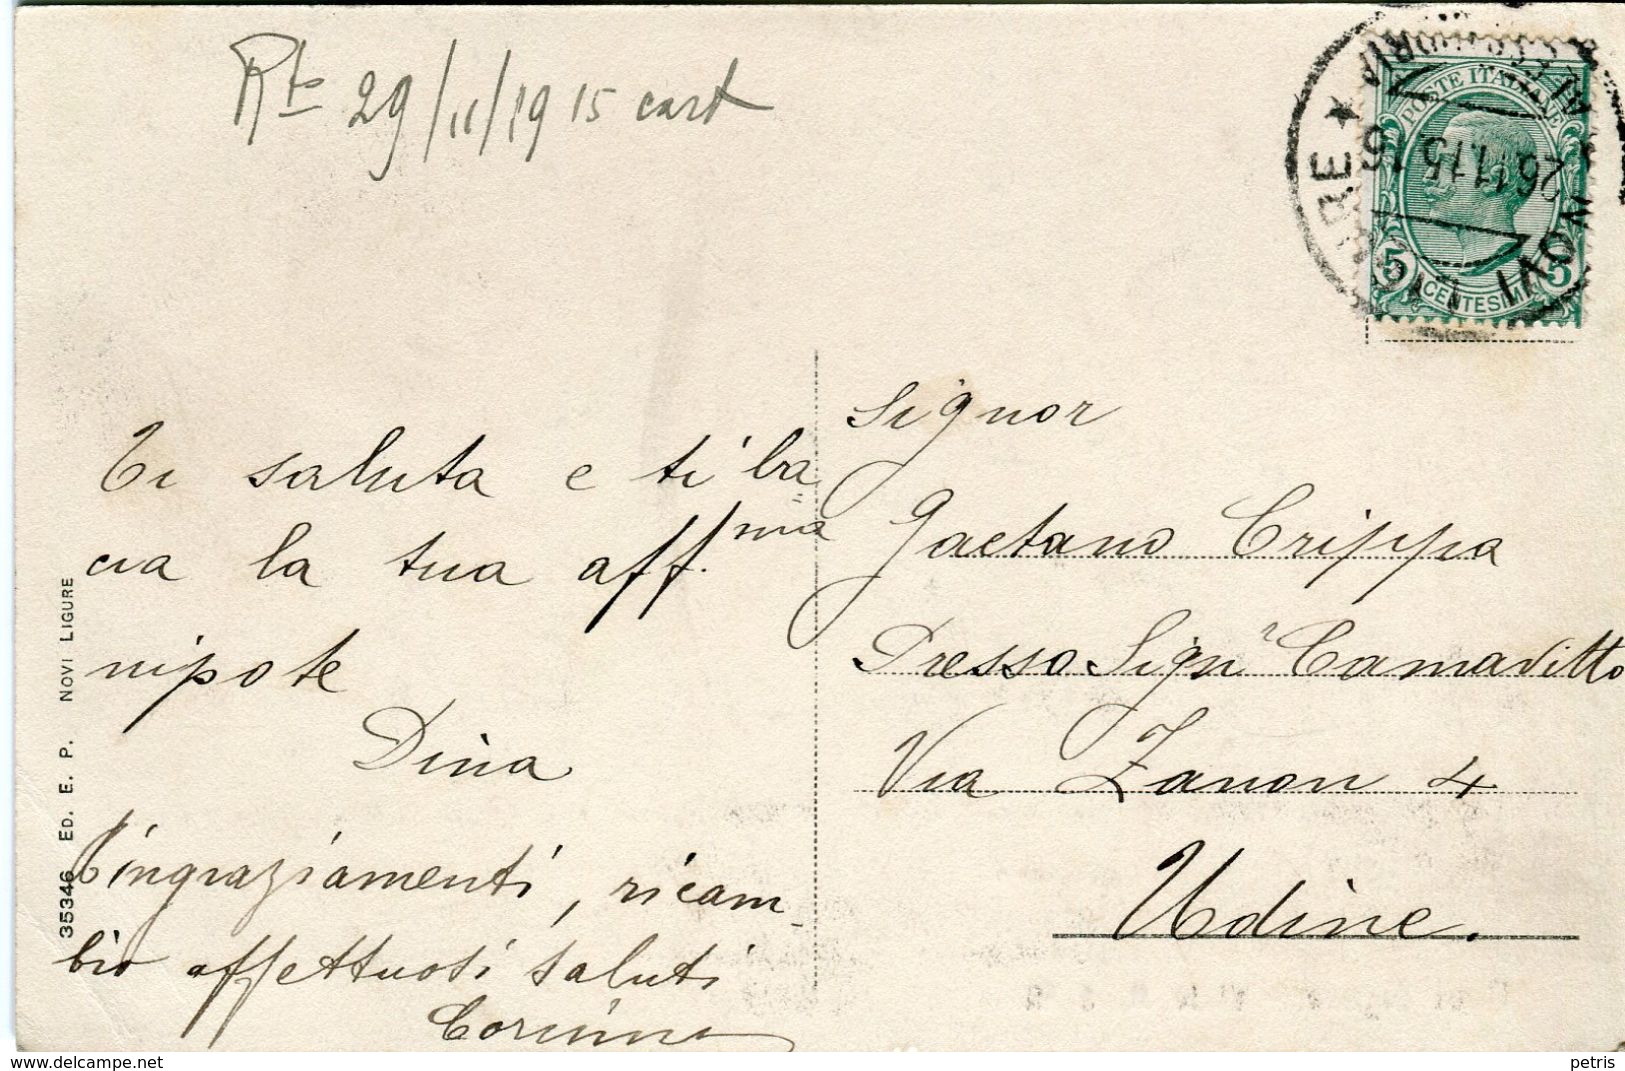 Rta 29/11/1915 cart
POSTE ITALIANE
5 CENTESIMI 5
NOVI LIGURE ★ ALESSANDRIA
16
26.11.15
Ti saluta e ti ba
cia la tua aff.ma
nipote
Dina
Ringraziamenti, ricam-
bio affettuosi saluti
Corinna
Signor
Gaetano Crippa
Presso Sigr Camavitto
Via Zanon 4
Udine.
35346 ED. E. P. NOVI LIGURE
petris